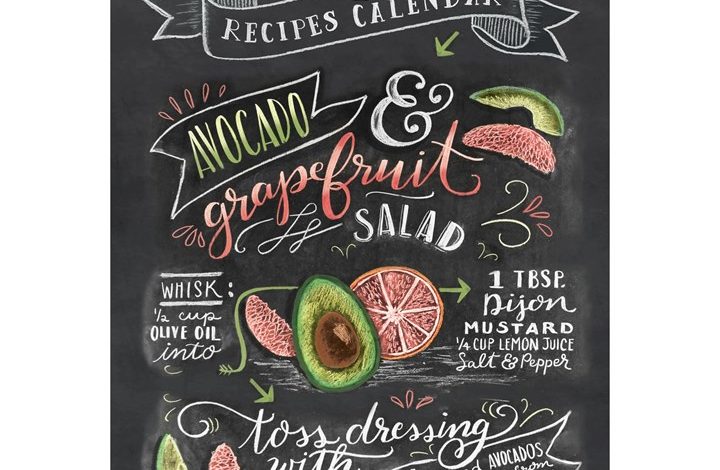 RECIPES CALENDAR
AVOCADO
&
grapefruit
SALAD
WHISK:
½ cup
OLIVE OIL
into
1 TBSP.
Dijon
MUSTARD
¼ CUP LEMON JUICE
Salt & Pepper
toss dressing
with
AVOCADOS
from